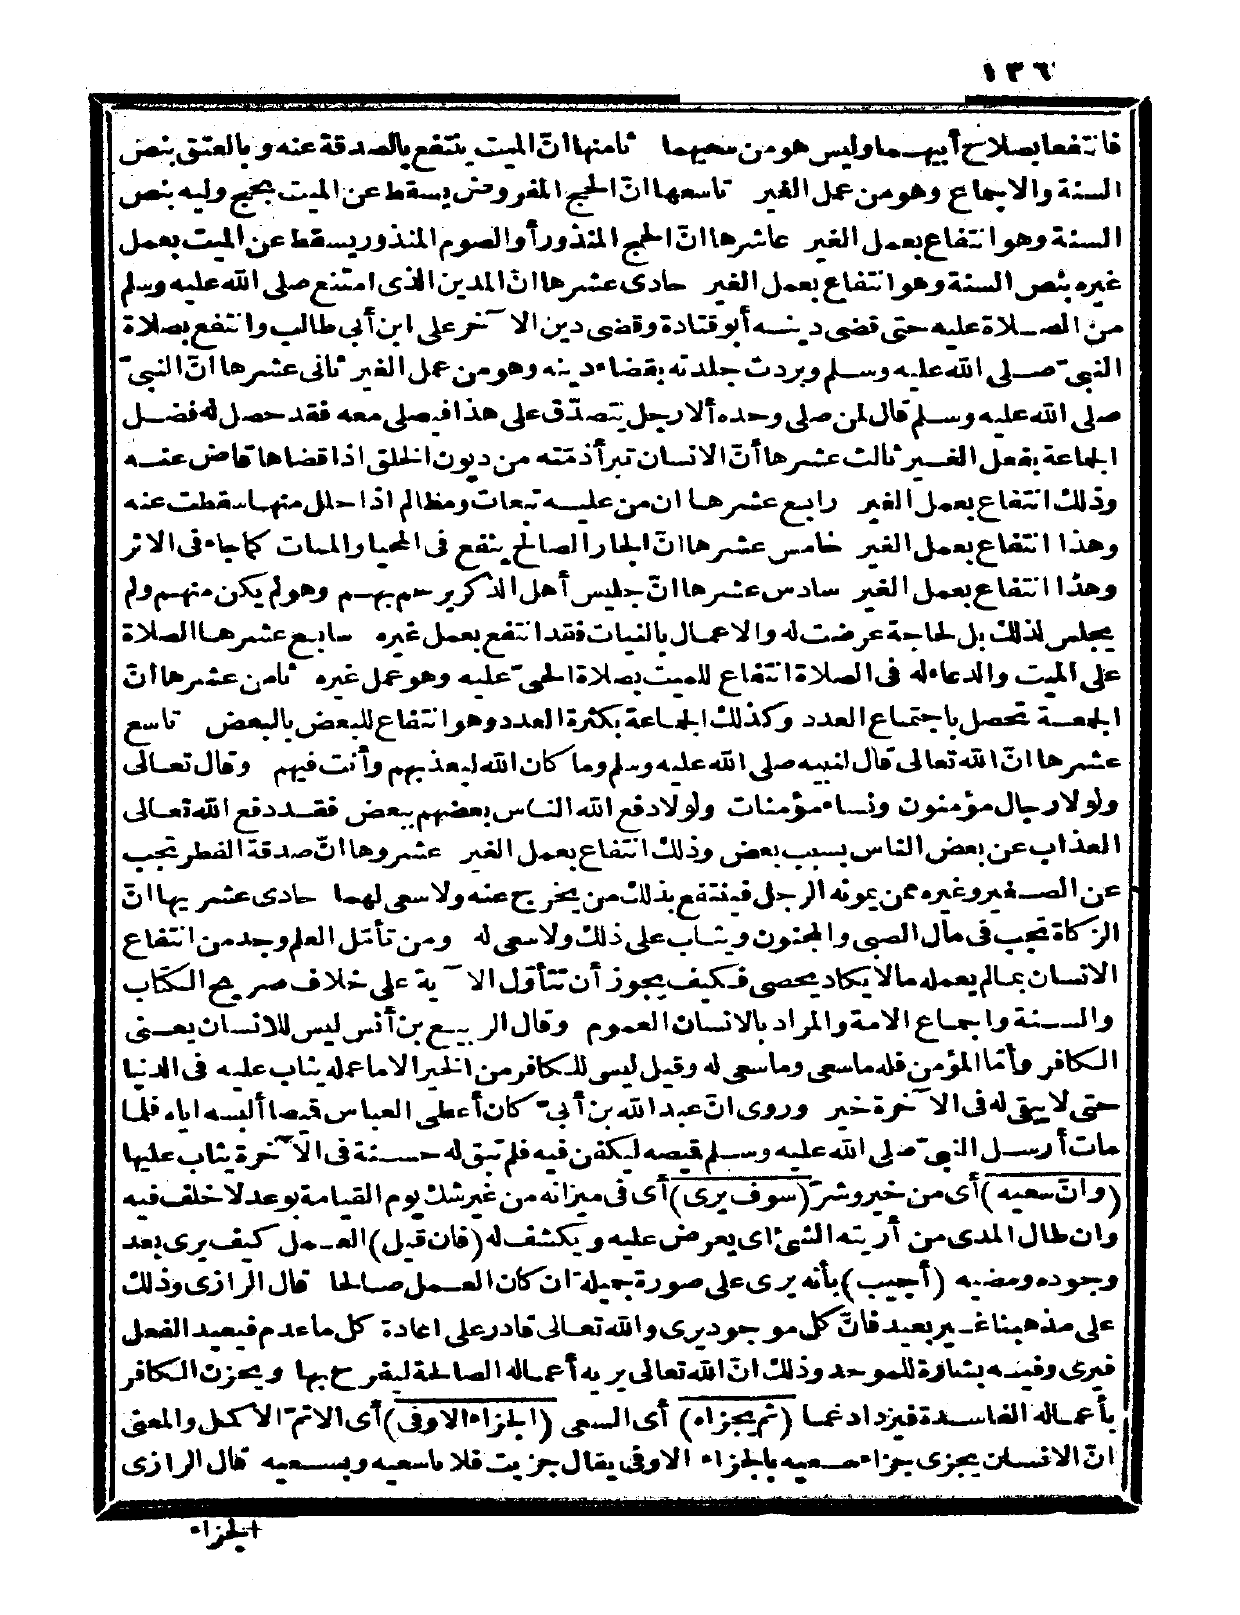 ١٣٦
فانتفعا بصلاح أبيهما وليس هو من سعيهما ثامنها انّ الميت ينتفع بالصدقة عنه وبالعتق بنص
السنة والاجماع وهو من عمل الغير تاسعها انّ الحج المفروض يسقط عن الميت بحج وليه بنص
السنة وهو انتفاع بعمل الغير عاشرها انّ الحج المنذور أو الصوم المنذور يسقط عن الميت بعمل
غيره بنص السنة وهو انتفاع بعمل الغير حادى عشرها انّ المدين الذى امتنع صلى الله عليه وسلم
من الصلاة عليه حتى قضى دينه أبو قتادة وقضى دين الآخر على ابن أبى طالب وانتفع بصلاة
النبىّ صلى الله عليه وسلم وبردت جلدته بقضاء دينه وهو من عمل الغير ثانى عشرها انّ النبىّ
صلى الله عليه وسلم قال لمن صلى وحده ألا رجل يتصدّق على هذا فيصلى معه فقد حصل له فضل
الجماعة بفعل الغير ثالث عشرها أنّ الانسان تبرأ ذمّته من ديون الخلق اذا قضاها قاض عنه
وذلك انتفاع بعمل الغير رابع عشرها ان من عليه تبعات ومظالم اذا حلل منها سقطت عنه
وهذا انتفاع بعمل الغير خامس عشرها انّ الجار الصالح ينفع فى المحيا والممات كما جاء فى الاثر
وهذا انتفاع بعمل الغير سادس عشرها انّ جليس أهل الذكر يرحم بهم وهو لم يكن منهم ولم
يجلس لذلك بل لحاجة عرضت له والاعمال بالنيات فقد انتفع بعمل غيره سابع عشرها الصلاة
على الميت والدعاء له فى الصلاة انتفاع للميت بصلاة الحىّ عليه وهو عمل غيره ثامن عشرها انّ
الجمعة تحصل باجتماع العدد وكذلك الجماعة بكثرة العدد وهو انتفاع للبعض بالبعض تاسع
عشرها انّ الله تعالى قال لنبيه صلى الله عليه وسلم وما كان الله ليعذبهم وأنت فيهم وقال تعالى
ولولا رجال مؤمنون ونساء مؤمنات ولولا دفع الله الناس بعضهم ببعض فقد دفع الله تعالى
العذاب عن بعض الناس بسبب بعض وذلك انتفاع بعمل الغير عشروها انّ صدقة الفطر تجب
عن الصغير وغيره ممن يمونه الرجل فينتفع بذلك من يخرج عنه ولا سعى لهما حادى عشريها انّ
الزكاة تجب فى مال الصبى والمجنون ويثاب على ذلك ولا سعى له ومن تأمّل العلم وجد من انتفاع
الانسان بما لم يعمله مالا يكاد يحصى فكيف يجوز أن تتأوّل الآية على خلاف صريح الكتاب
والسنة واجماع الامة والمراد بالانسان العموم وقال الربيع بن أنس ليس للانسان يعنى
الكافر وأمّا المؤمن فله ما سعى وما سعى له وقيل ليس للكافر من الخير الا ما عمله يثاب عليه فى الدنيا
حتى لا يبقى له فى الآخرة خير وروى انّ عبد الله بن أبىّ كان أعطى العباس قميصا ألبسه اياه فلما
مات أرسل النبىّ صلى الله عليه وسلم قميصه ليكفن فيه فلم تبق له حسنة فى الآخرة يثاب عليها
(وانّ سعيه) أى من خير وشرّ (سوف يرى) أى فى ميزانه من غير شك يوم القيامة بوعد لا خلف فيه
وان طال المدى من أريته الشئ اى يعرض عليه ويكشف له (فان قيل) العمل كيف يرى بعد
وجوده ومضيه (أجيب) بأنه يرى على صورة جميلة ان كان العمل صالحا قال الرازى وذلك
على مذهبنا غير بعيد فانّ كل موجود يرى والله تعالى قادر على اعادة كل ما عدم فيعيد الفعل
فيرى وفيه بشارة للموحد وذلك انّ الله تعالى يريه أعماله الصالحة ليفرح بها ويحزن الكافر
بأعماله الفاسدة فيزداد غما (ثم يجزاه) أى السعى (الجزاء الاوفى) أى الاتمّ الاكمل والمعنى
انّ الانسان يجزى جزاء سعيه بالجزاء الاوفى يقال جزيت فلانا سعيه وبسعيه قال الرازى
الجزاء